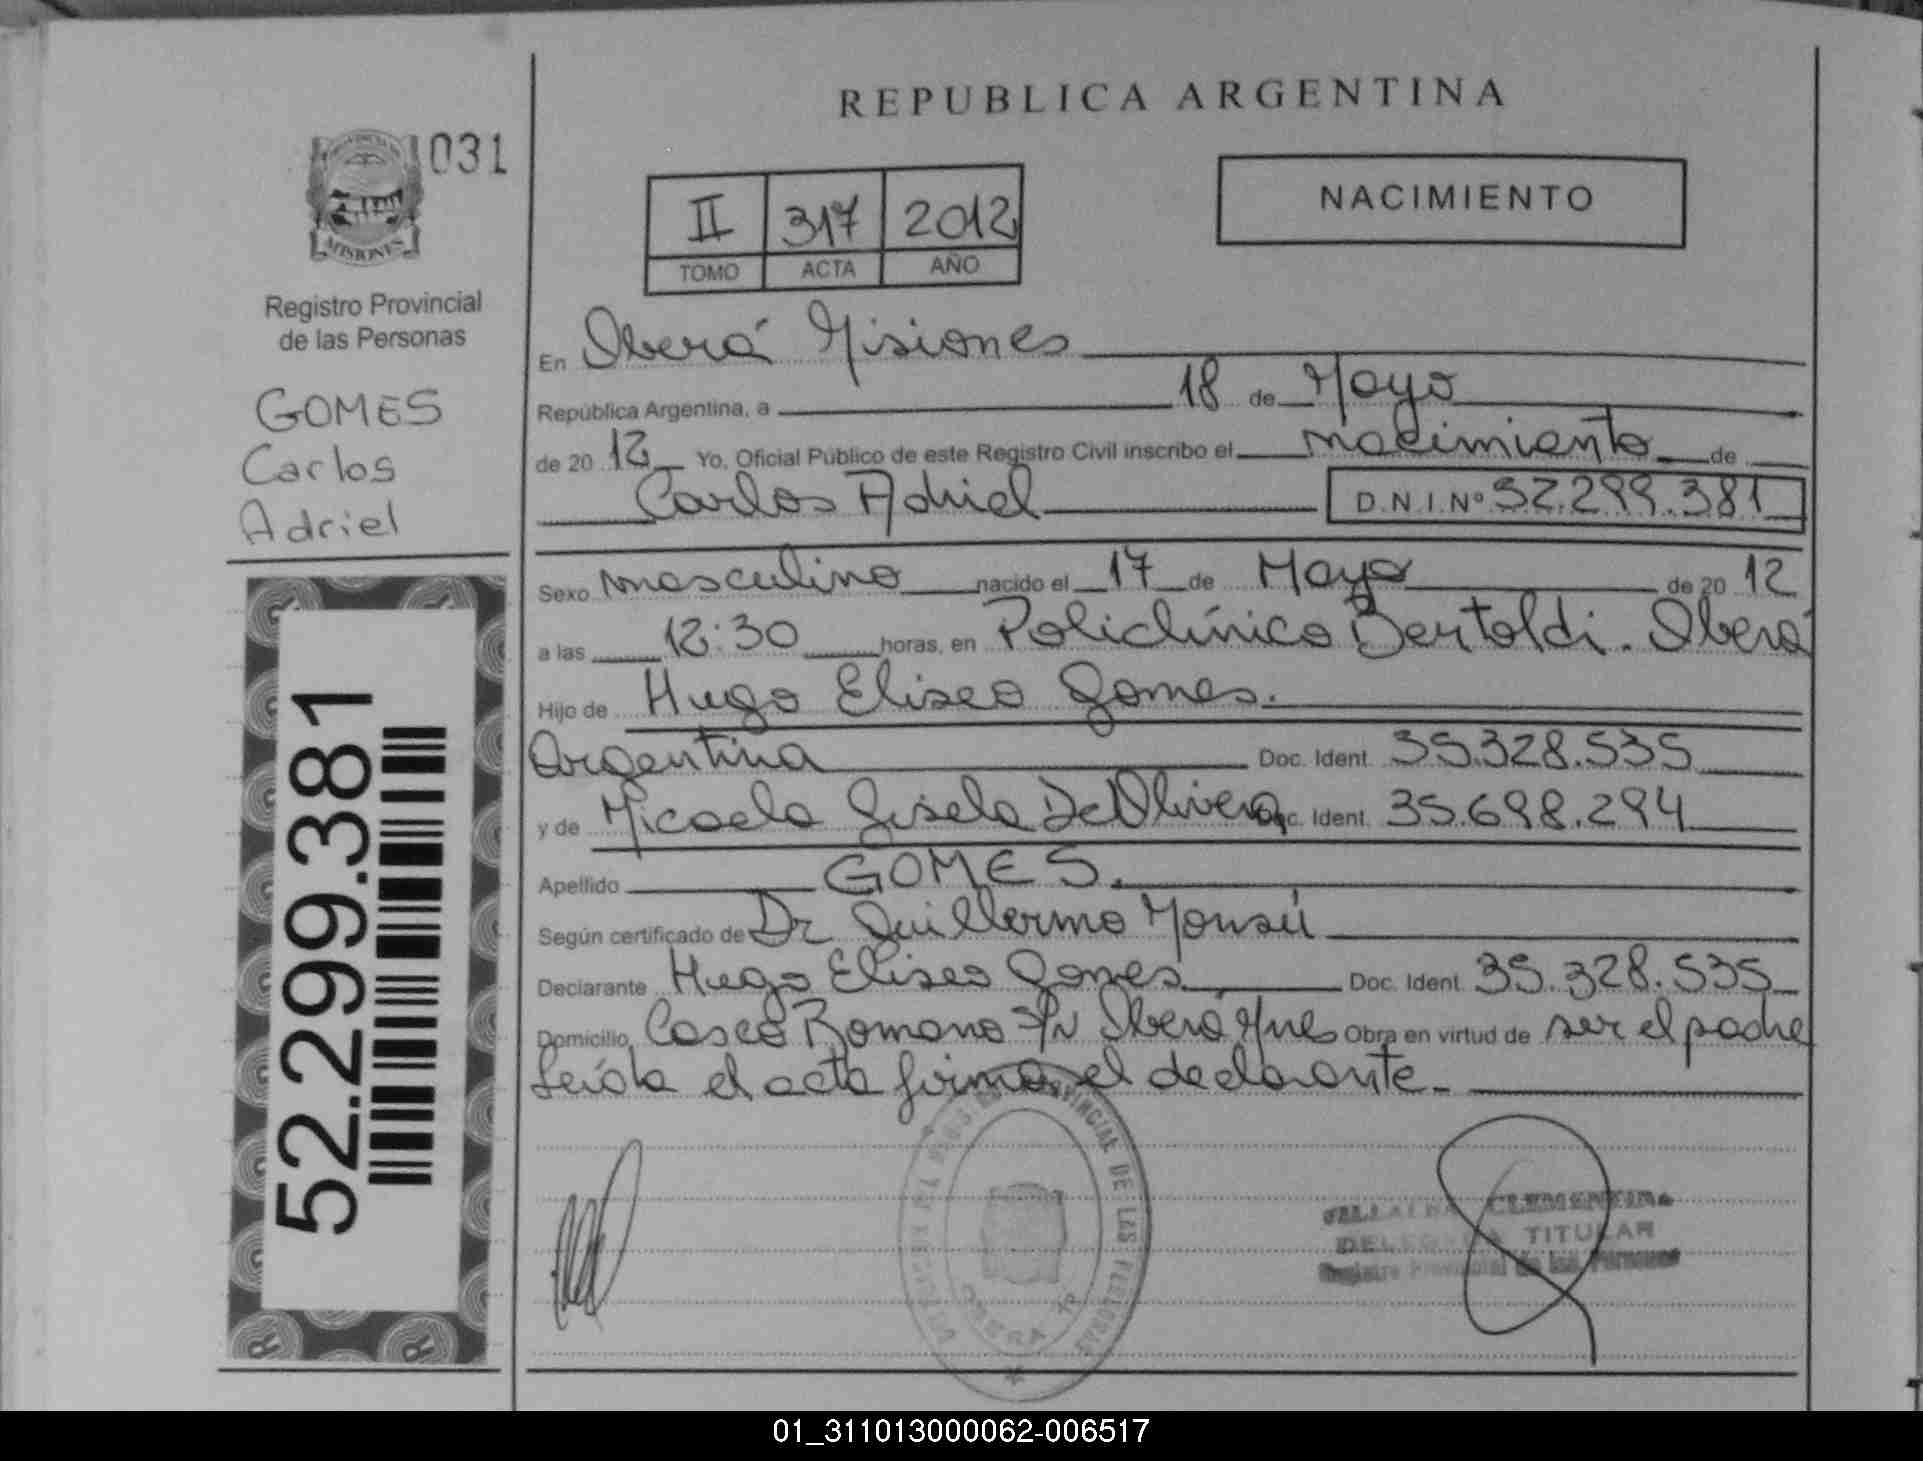 REPUBLICA ARGENTINA
031
MISIONES
Registro Provincial
de las Personas
GOMES
Carlos
Adriel
52.299.381
II 317 2012
TOMO ACTA AÑO
NACIMIENTO
En Oberá Misiones
República Argentina, a 18 de Mayo
de 20 12 Yo, Oficial Público de este Registro Civil inscribo el nacimiento de
Carlos Adriel D.N.I.Nº 52.299.381
Sexo masculino nacido el 17 de Mayo de 20 12
a las 12:30 horas, en Policlínico Bertoldi. Oberá
Hijo de Hugo Eliseo Gomes.
Argentina Doc. Ident. 35.328.535
y de Micaela Gisela De Olivera Doc. Ident. 35.698.294
Apellido GOMES.
Según certificado de Dr Guillermo
Declarante Hugo Eliseo Gomes Doc. Ident. 35.328.535
Domicilio Romano S/N Oberá Mnes Obra en virtud de ser el padre
Leída el acta firma el declarante.
PROVINCIAL DE LAS PERSONAS
OBERA
CLEMENTINA
DELEGADA TITULAR
Registro Provincial de las Personas
01_311013000062-006517